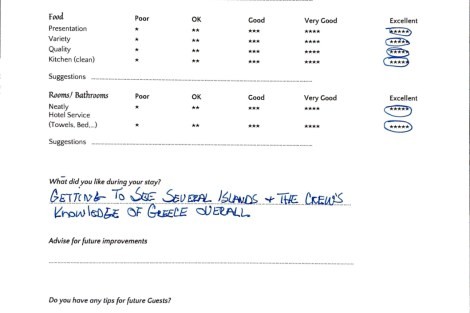 Food Poor OK Good Very Good Excellent
Presentation * ** *** **** *****
Variety * ** *** **** *****
Quality * ** *** **** *****
Kitchen (clean) * ** *** **** *****
Suggestions
Rooms/ Bathrooms Poor OK Good Very Good Excellent
Neatly * ** *** **** *****
Hotel Service
(Towels, Bed...) * ** *** **** *****
Suggestions
What did you like during your stay?
GETTING TO SEE SEVERAL ISLANDS + THE CREW'S
KNOWLEDGE OF GREECE OVERALL
Advise for future improvements
Do you have any tips for future Guests?